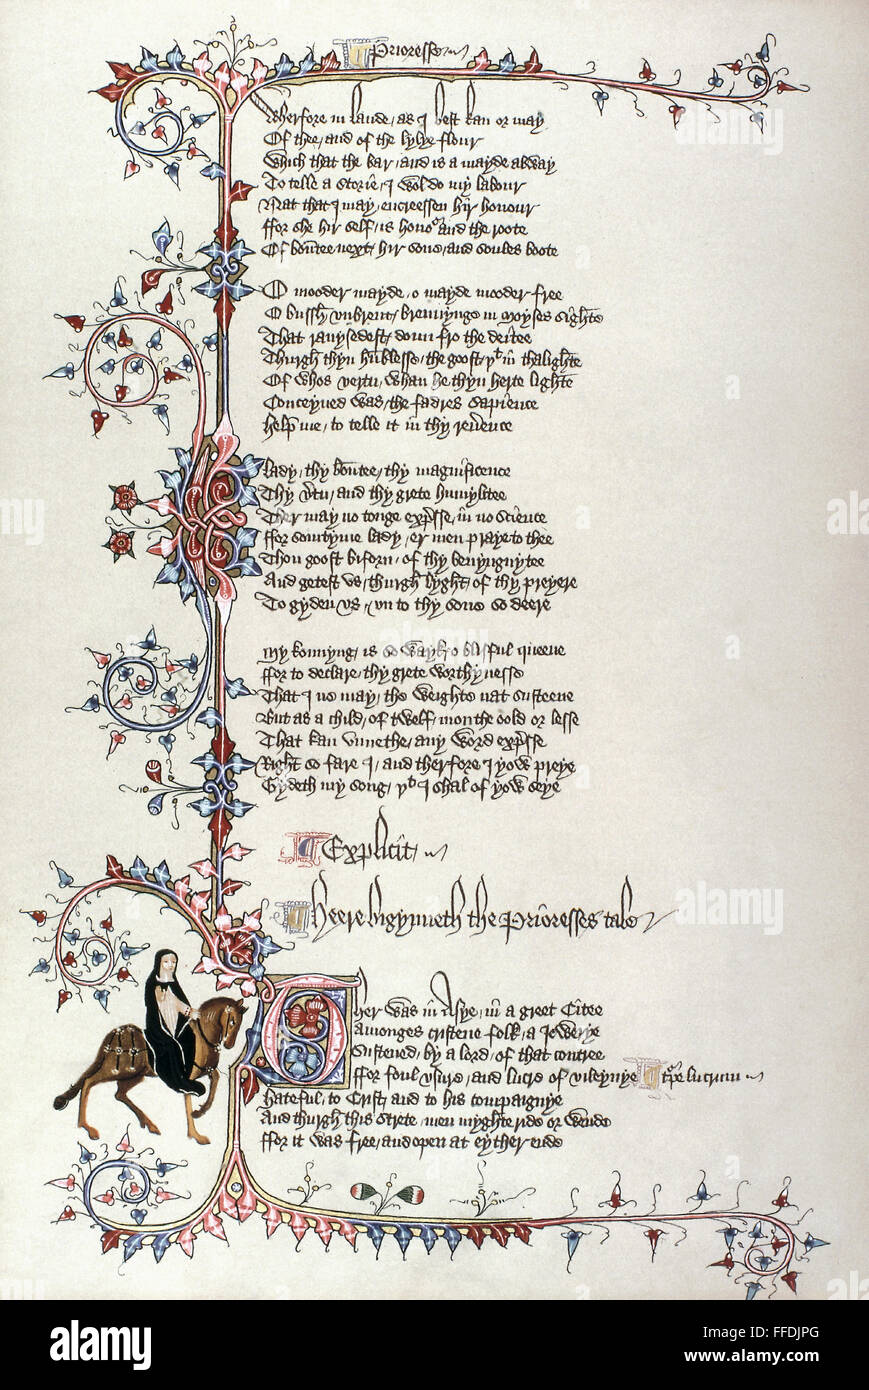 Prioresse
Wherfore in laude, as I best kan or may
Of thee, and of the lylye flour
Which that the bar, and is a mayde alway
To telle a storie, I wol do my labour
Nat that I may, encreessen hir honour
ffor she hir self, is honor and the roote
Of bountee next, hir sone, and soules boote
O mooder mayde, o mayde mooder free
O bussh vnbrent, brennynge in Moyses sighte
That rauysedest, doun fro the deitee
Thurgh thyn humblesse, the goost, yt in thalighte
Of whos vertu, whan he thyn herte lighte
Conceyued was, the fadres sapience
Help me, to telle it in thy reuerence
Lady, thy bountee, thy magnificence
Thy vertu, and thy grete humylitee
Ther may no tonge expresse, in no science
ffor somtyme lady, er men praye to thee
Thou goost biforn, of thy benyngnytee
And getest vs, thurgh lyght, of thy preyere
To gyden vs, vn to thy sone so deere
My konnyng, is so wayk, o blisful queene
ffor to declare, thy grete worthynesse
That I ne may, the weighte nat susteene
But as a child, of twelf, monthe oold or lesse
That kan vnnethe, any word expresse
Right so fare I, and therfore I yow preye
Gydeth my song, yt I shal of yow seye
Explicit
Heere bigynneth the Prioresses tale
Ther was in Asye, in a greet Citee
Amonges cristene folk, a Iewerye
Sustened, by a lord, of that contree
ffor foul vsure, and lucre of vileynye turpe lucrum
Hateful, to Crist, and to his compaignye
And thurgh this strete, men myghte ride or wende
ffor it was free, and open at eyther ende
alamy
alamy
Image ID: FFDJPG
www.alamy.com